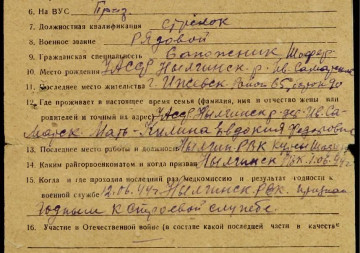 6. На ВУС Праз.
7. Должностная квалификация стрелок
8. Военное звание Рядовой
9. Гражданская специальность Сапожник, Шофер
10. Место рождения УАССР Нылгинск-р.
11. Последнее место жительства г. Ижевск
12. Где проживает в настоящее время семья (фамилия, имя и отчество жены или
родителей и точный их адрес) УАССР Нылгинск р-
Мать- Евдокия
13. Последнее место работы и должность Нылгин РВК
14. Каким райгорвоенкоматом и когда призван Нылгинск РВК. 1.06.44г.
15. Когда и где проходил последний раз медкомиссию и результат годности к
военной службе 12.06.44г. Нылгинск РВК. признан
годным к строевой службе.
16. Участие в Отечественной войне (в составе какой последней части и в качестве